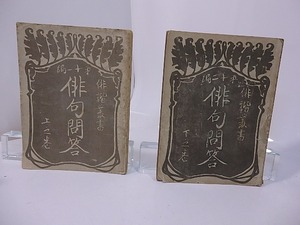 俳諧叢書
第十二編
俳句問答
上之巻
俳諧叢書
第十二編
俳句問答
下之巻